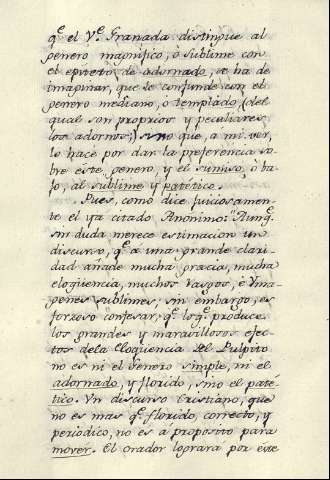 qᵉ el Vᵉ. Granada distingue al
genero magnifico, ò sublime con
el epiteto de adornado, se ha de
imaginar, que le confunde con el
genero mediano, ò templado (del
qual son proprios y peculiares
los adornos;) sino que, a mi ver,
lo hace por dar la preferencia so-
bre este genero, y el sumiso, ò ba-
jo, al sublime y patetico.
Pues, como dice juiciosamen-
te el ya citado Anonimo: "Aunqᵉ.
sin duda merece estimacion un
discurso, qᵉ. a una grande clari-
dad añade mucha gracia, mucha
eloqüencia, muchos rasgos, è Yma-
genes sublimes; sin embargo, es
forzoso confesar, qᵉ. lo qᵉ. produce
los grandes y maravillosos efec-
tos dela Eloqüencia del Pulpito
no es ni el Genero simple, ni el
adornado, y florido, sino el pate-
tico. Vn discurso Cristiano, que
no es mas qᵉ. florido, correcto, y
periodico, no es à proposito para
mover. El orador lograrà por este